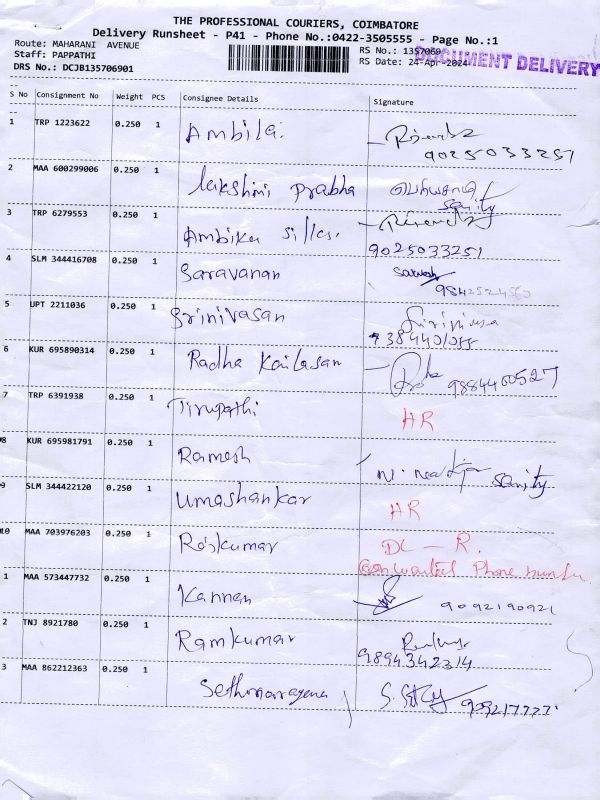 THE PROFESSIONAL COURIERS, COIMBATORE
Delivery Runsheet - P41 - Phone No.:0422-3505555 - Page No.:1
Route: MAHARANI AVENUE
RS No.: 1357069
Staff: PAPPATHI
DOCUMENT DELIVERY
DRS No.: DCJB135706901
RS Date: 24-Apr-2024
S No Consignment No Weight PCS Consignee Details Signature
1 TRP 1223622 0.250 1 Ambika
9025033251
2 MAA 600299006 0.250 1 lakshmi prabha
3 TRP 6279553 0.250 1 Ambika silks.
9025033251
4 SLM 344416708 0.250 1 Saravanan
5 UPT 2211036 0.250 1 Srinivasan
6 KUR 695890314 0.250 1 Radha Kailasan
7 TRP 6391938 0.250 1 Tirupathi HR
8 KUR 695981791 0.250 1 Ramesh
9 SLM 344422120 0.250 1 Umashankar HR
10 MAA 703976203 0.250 1 Rajkumar DL - R.
Phone
1 MAA 573447732 0.250 1 Kannan 9092190921
2 TNJ 8921780 0.250 1 Ramkumar
9894342314
3 MAA 862212363 0.250 1